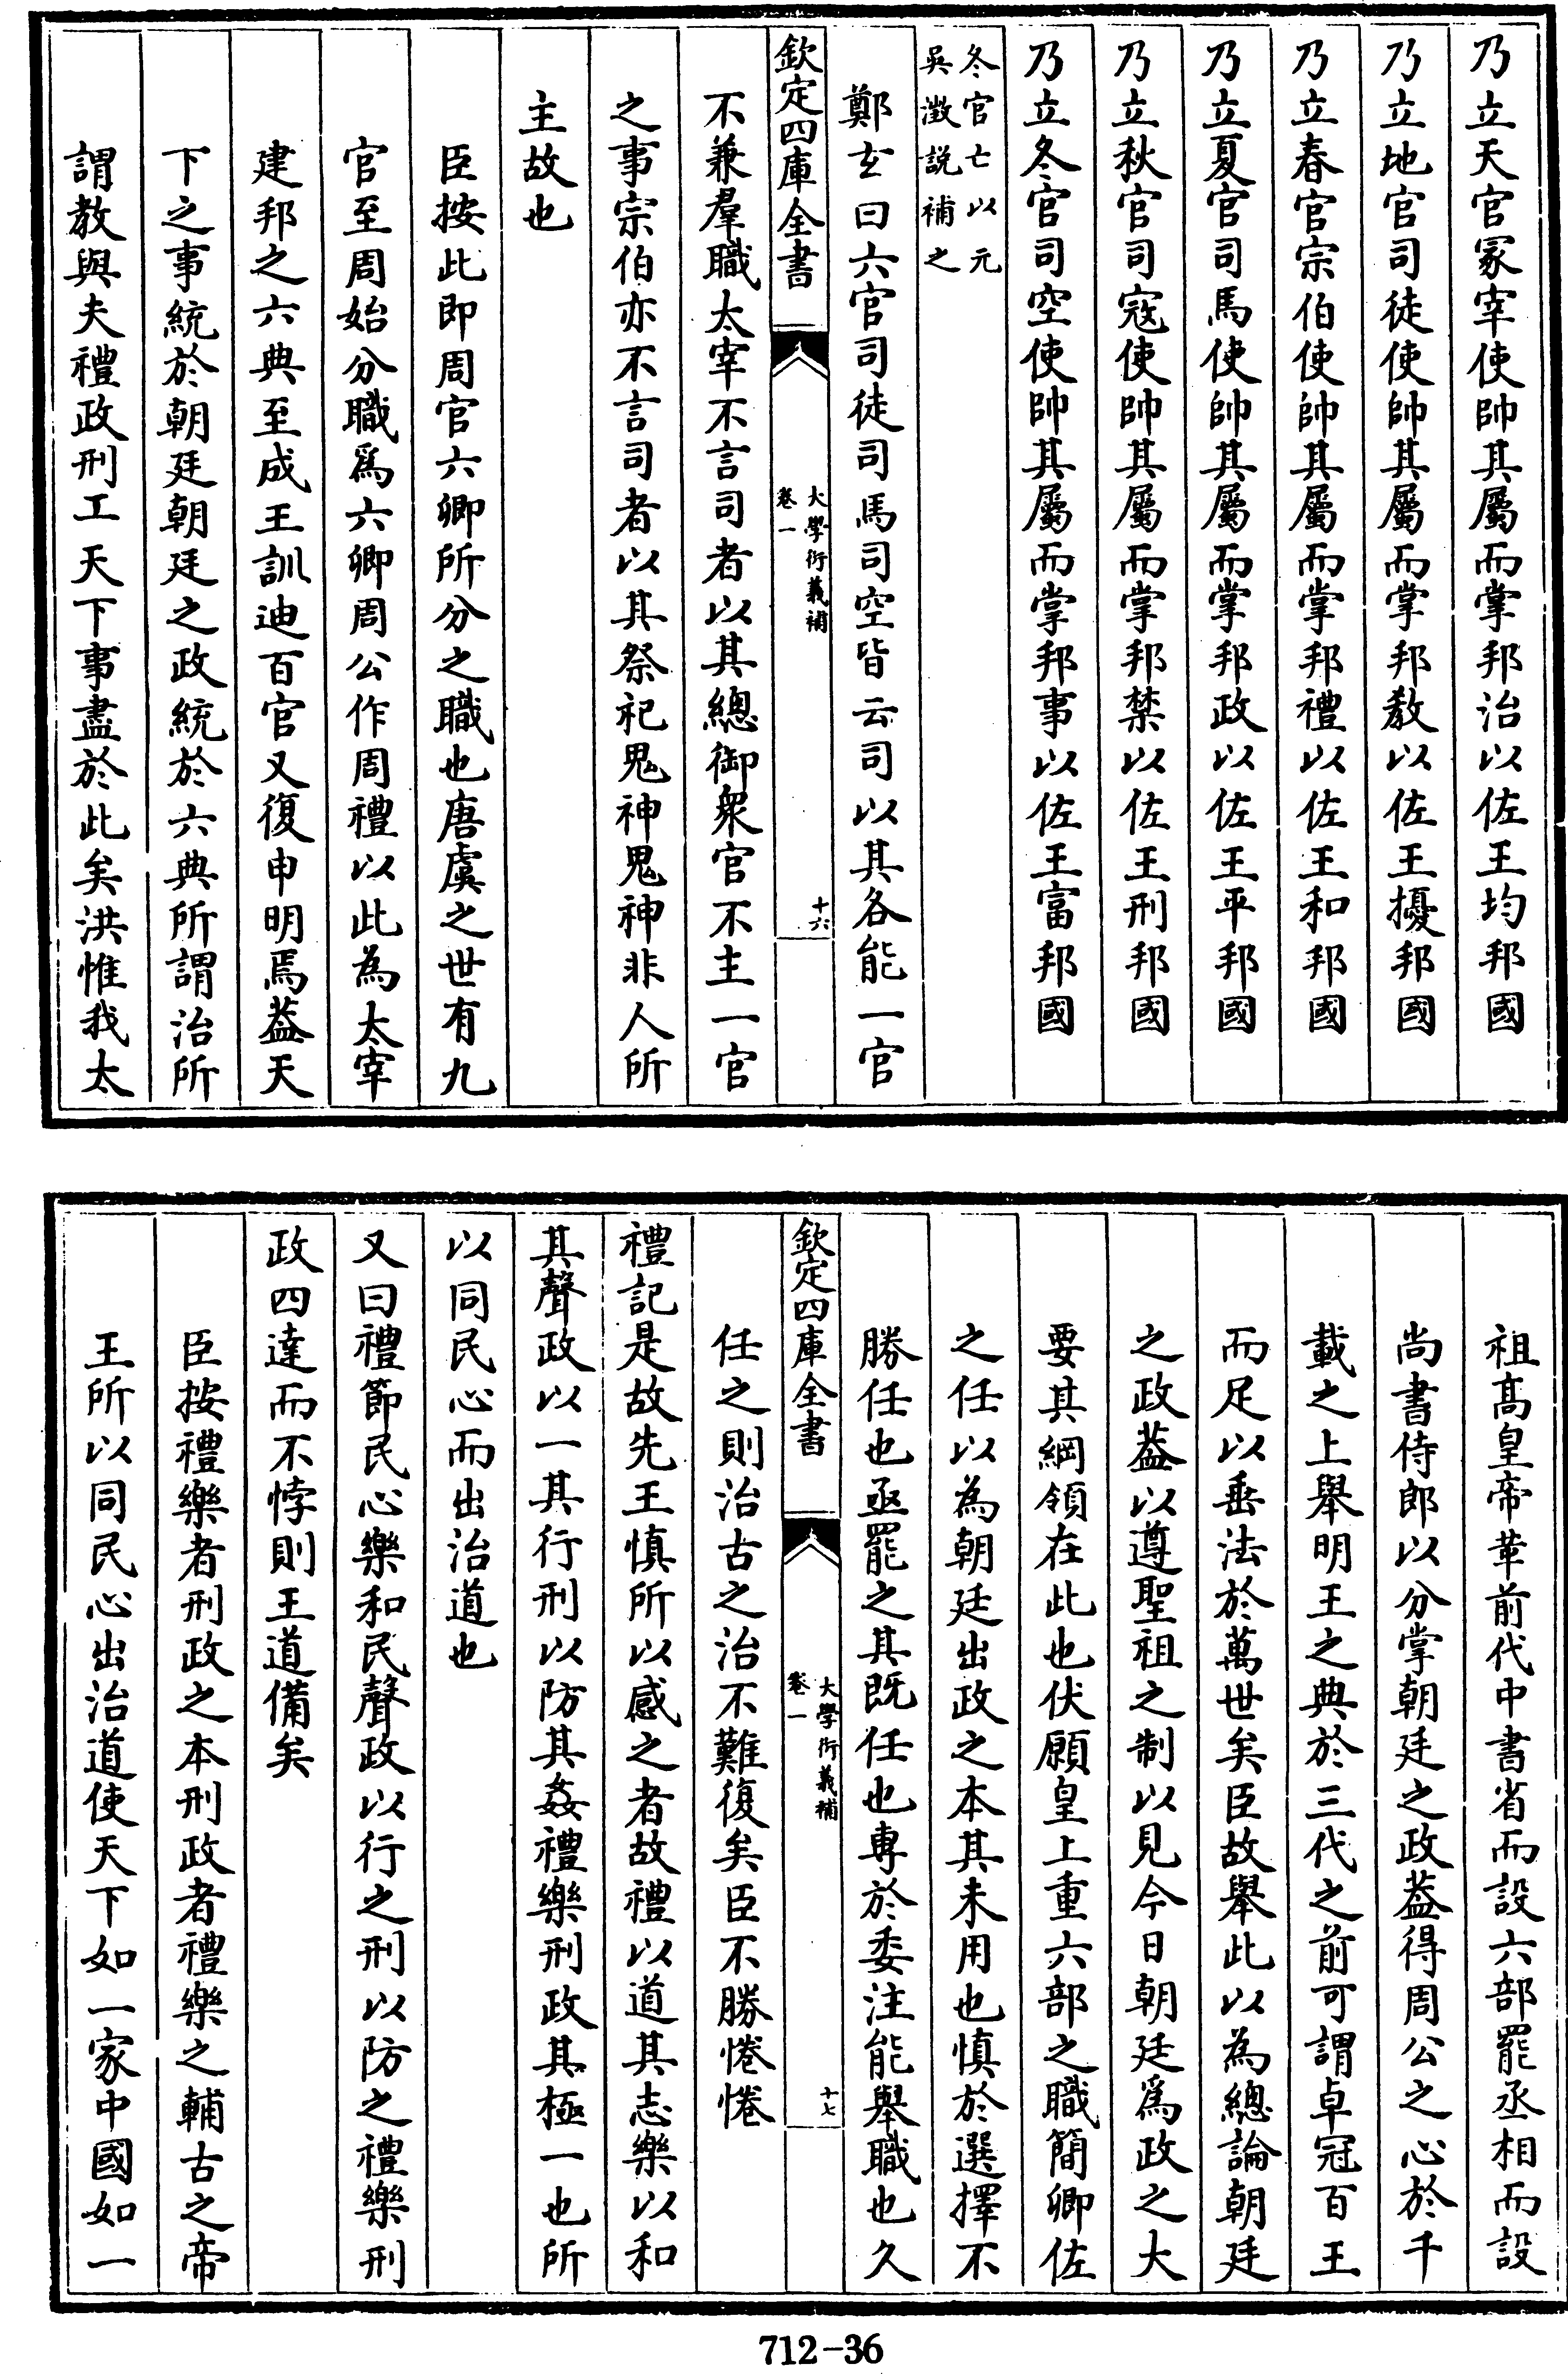 乃立天官冢宰使帥其屬而掌邦治以佐王均邦國
乃立地官司徒使帥其屬而掌邦教以佐王擾邦國
乃立春官宗伯使帥其屬而掌邦禮以佐王和邦國
乃立夏官司馬使帥其屬而掌邦政以佐王平邦國
乃立秋官司寇使帥其屬而掌邦禁以佐王刑邦國
乃立冬官司空使帥其屬而掌邦事以佐王富邦國
冬官亡以元
吳澂説補之
鄭玄曰六官司徒司馬司空皆云司以其各能一官
欽定四庫全書
大學衍義補
卷一
十六
不兼羣職太宰不言司者以其總御衆官不主一官
之事宗伯亦不言司者以其祭祀鬼神鬼神非人所
主故也
臣按此即周官六卿所分之職也唐虞之世有九
官至周始分職爲六卿周公作周禮以此為太宰
建邦之六典至成王訓迪百官又復申明焉葢天
下之事統於朝廷朝廷之政統於六典所謂治所
謂教與夫禮政刑工天下事盡於此矣洪惟我太
祖髙皇帝革前代中書省而設六部罷丞相而設
尚書侍郎以分掌朝廷之政葢得周公之心於千
載之上舉明王之典於三代之前可謂卓冠百王
而足以垂法於萬世矣臣故舉此以為總論朝廷
之政葢以遵聖祖之制以見今日朝廷爲政之大
要其綱領在此也伏願皇上重六部之職簡卿佐
之任以為朝廷出政之本其未用也慎於選擇不
勝任也亟罷之其既任也專於委注能舉職也久
欽定四庫全書
大學衍義補
卷一
十七
任之則治古之治不難復矣臣不勝惓惓
禮記是故先王慎所以感之者故禮以道其志樂以和
其聲政以一其行刑以防其姦禮樂刑政其極一也所
以同民心而出治道也
又曰禮節民心樂和民聲政以行之刑以防之禮樂刑
政四達而不悖則王道備矣
臣按禮樂者刑政之本刑政者禮樂之輔古之帝
王所以同民心出治道使天下如一家中國如一
712-36